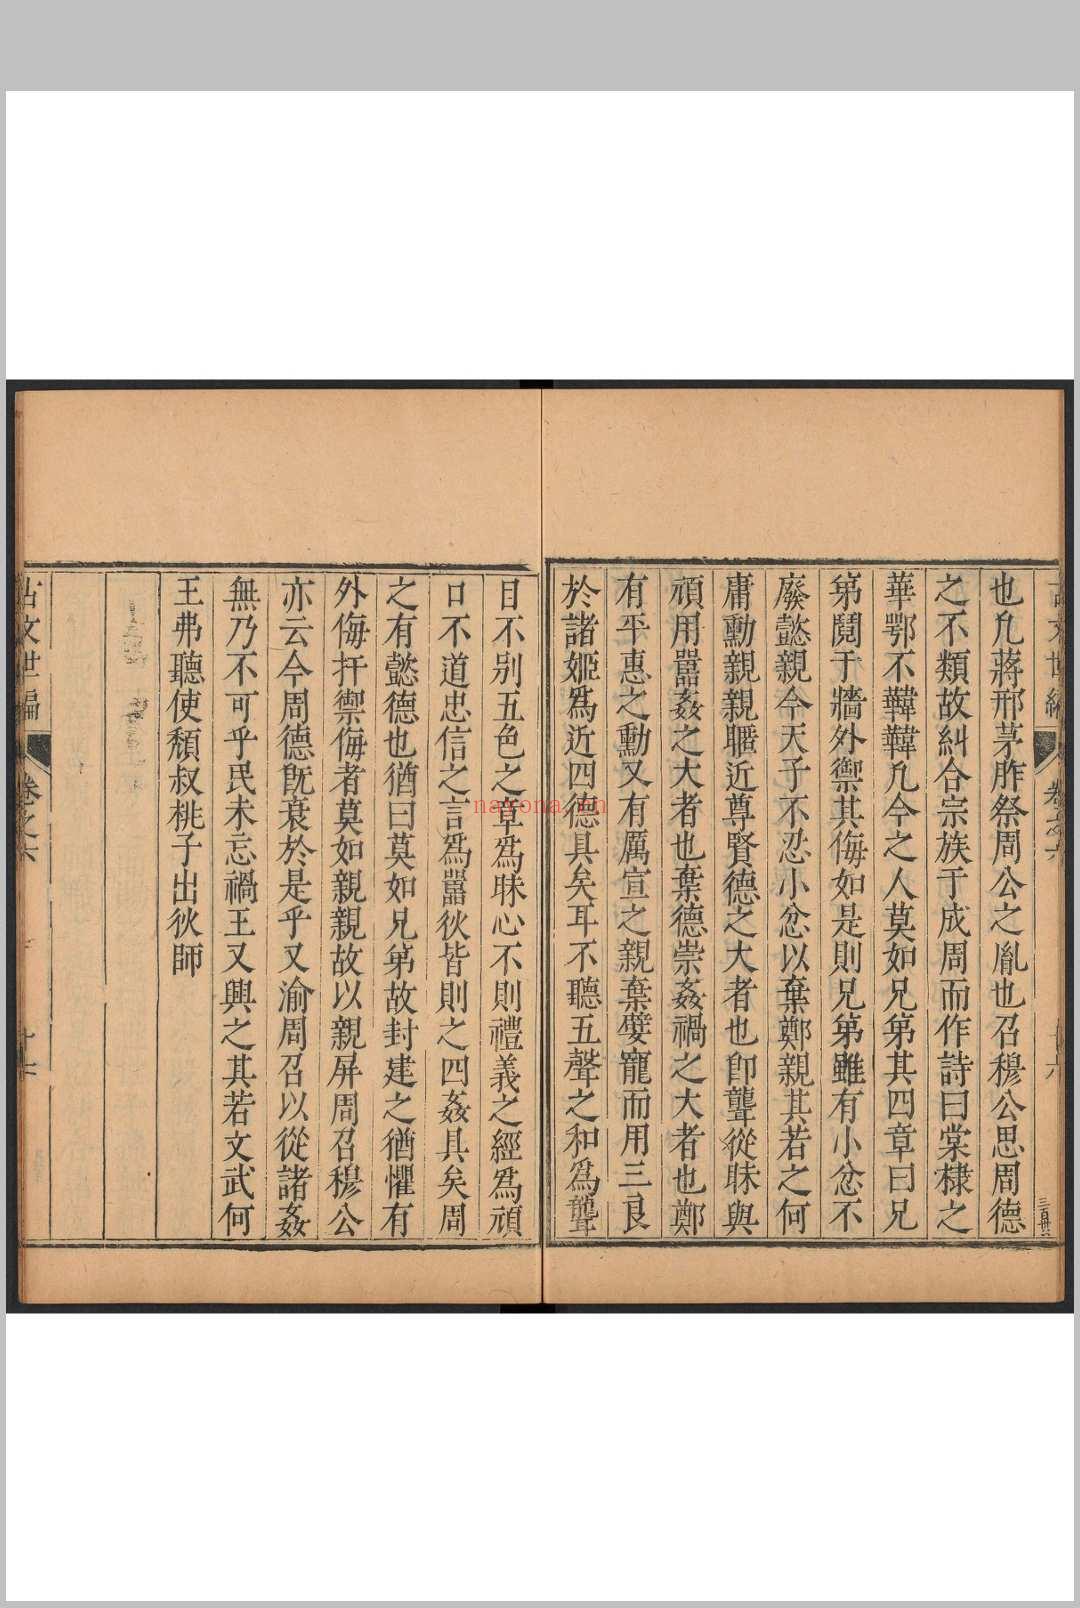 古文世編 卷之六 十六 三百卌六
也凡蔣邢茅胙祭周公之胤也召穆公思周德
之不類故糾合宗族于成周而作詩曰棠棣之
華鄂不韡韡凡今之人莫如兄弟其四章曰兄
弟鬩于牆外禦其侮如是則兄弟雖有小忿不
廢懿親今天子不忍小忿以棄鄭親其若之何
庸勳親親暱近尊賢德之大者也卽聾從昧與
頑用嚚姦之大者也棄德崇姦禍之大者也鄭
有平惠之勳又有厲宣之親棄嬖寵而用三良
於諸姬爲近四德具矣耳不聽五聲之和爲聾
目不别五色之章爲昧心不則禮義之經爲頑
口不道忠信之言爲嚚狄皆則之四姦具矣周
之有懿德也猶曰莫如兄弟故封建之猶懼有
外侮扞禦侮者莫如親親故以親屏周召穆公
亦云今周德旣衰於是乎又渝周召以從諸姦
無乃不可乎民未忘禍王又興之其若文武何
王弗聽使頹叔桃子出狄師
古文世編 卷之六
nayona.cn